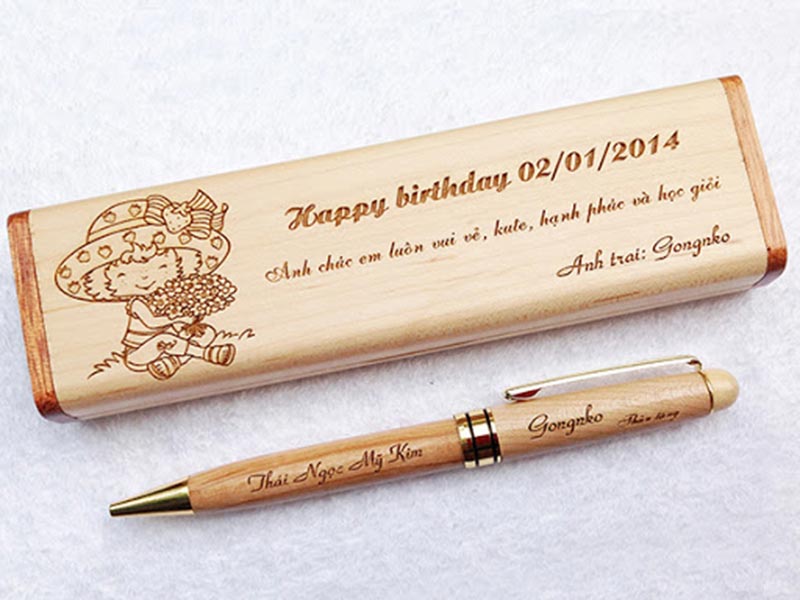 Happy birthday 02/01/2014
Anh chúc em luôn vui vẻ, kute, hạnh phúc và học giỏi
Anh trai: Gongnko
Gongnko
Thân tặng
Thái Ngọc Mỹ Kim